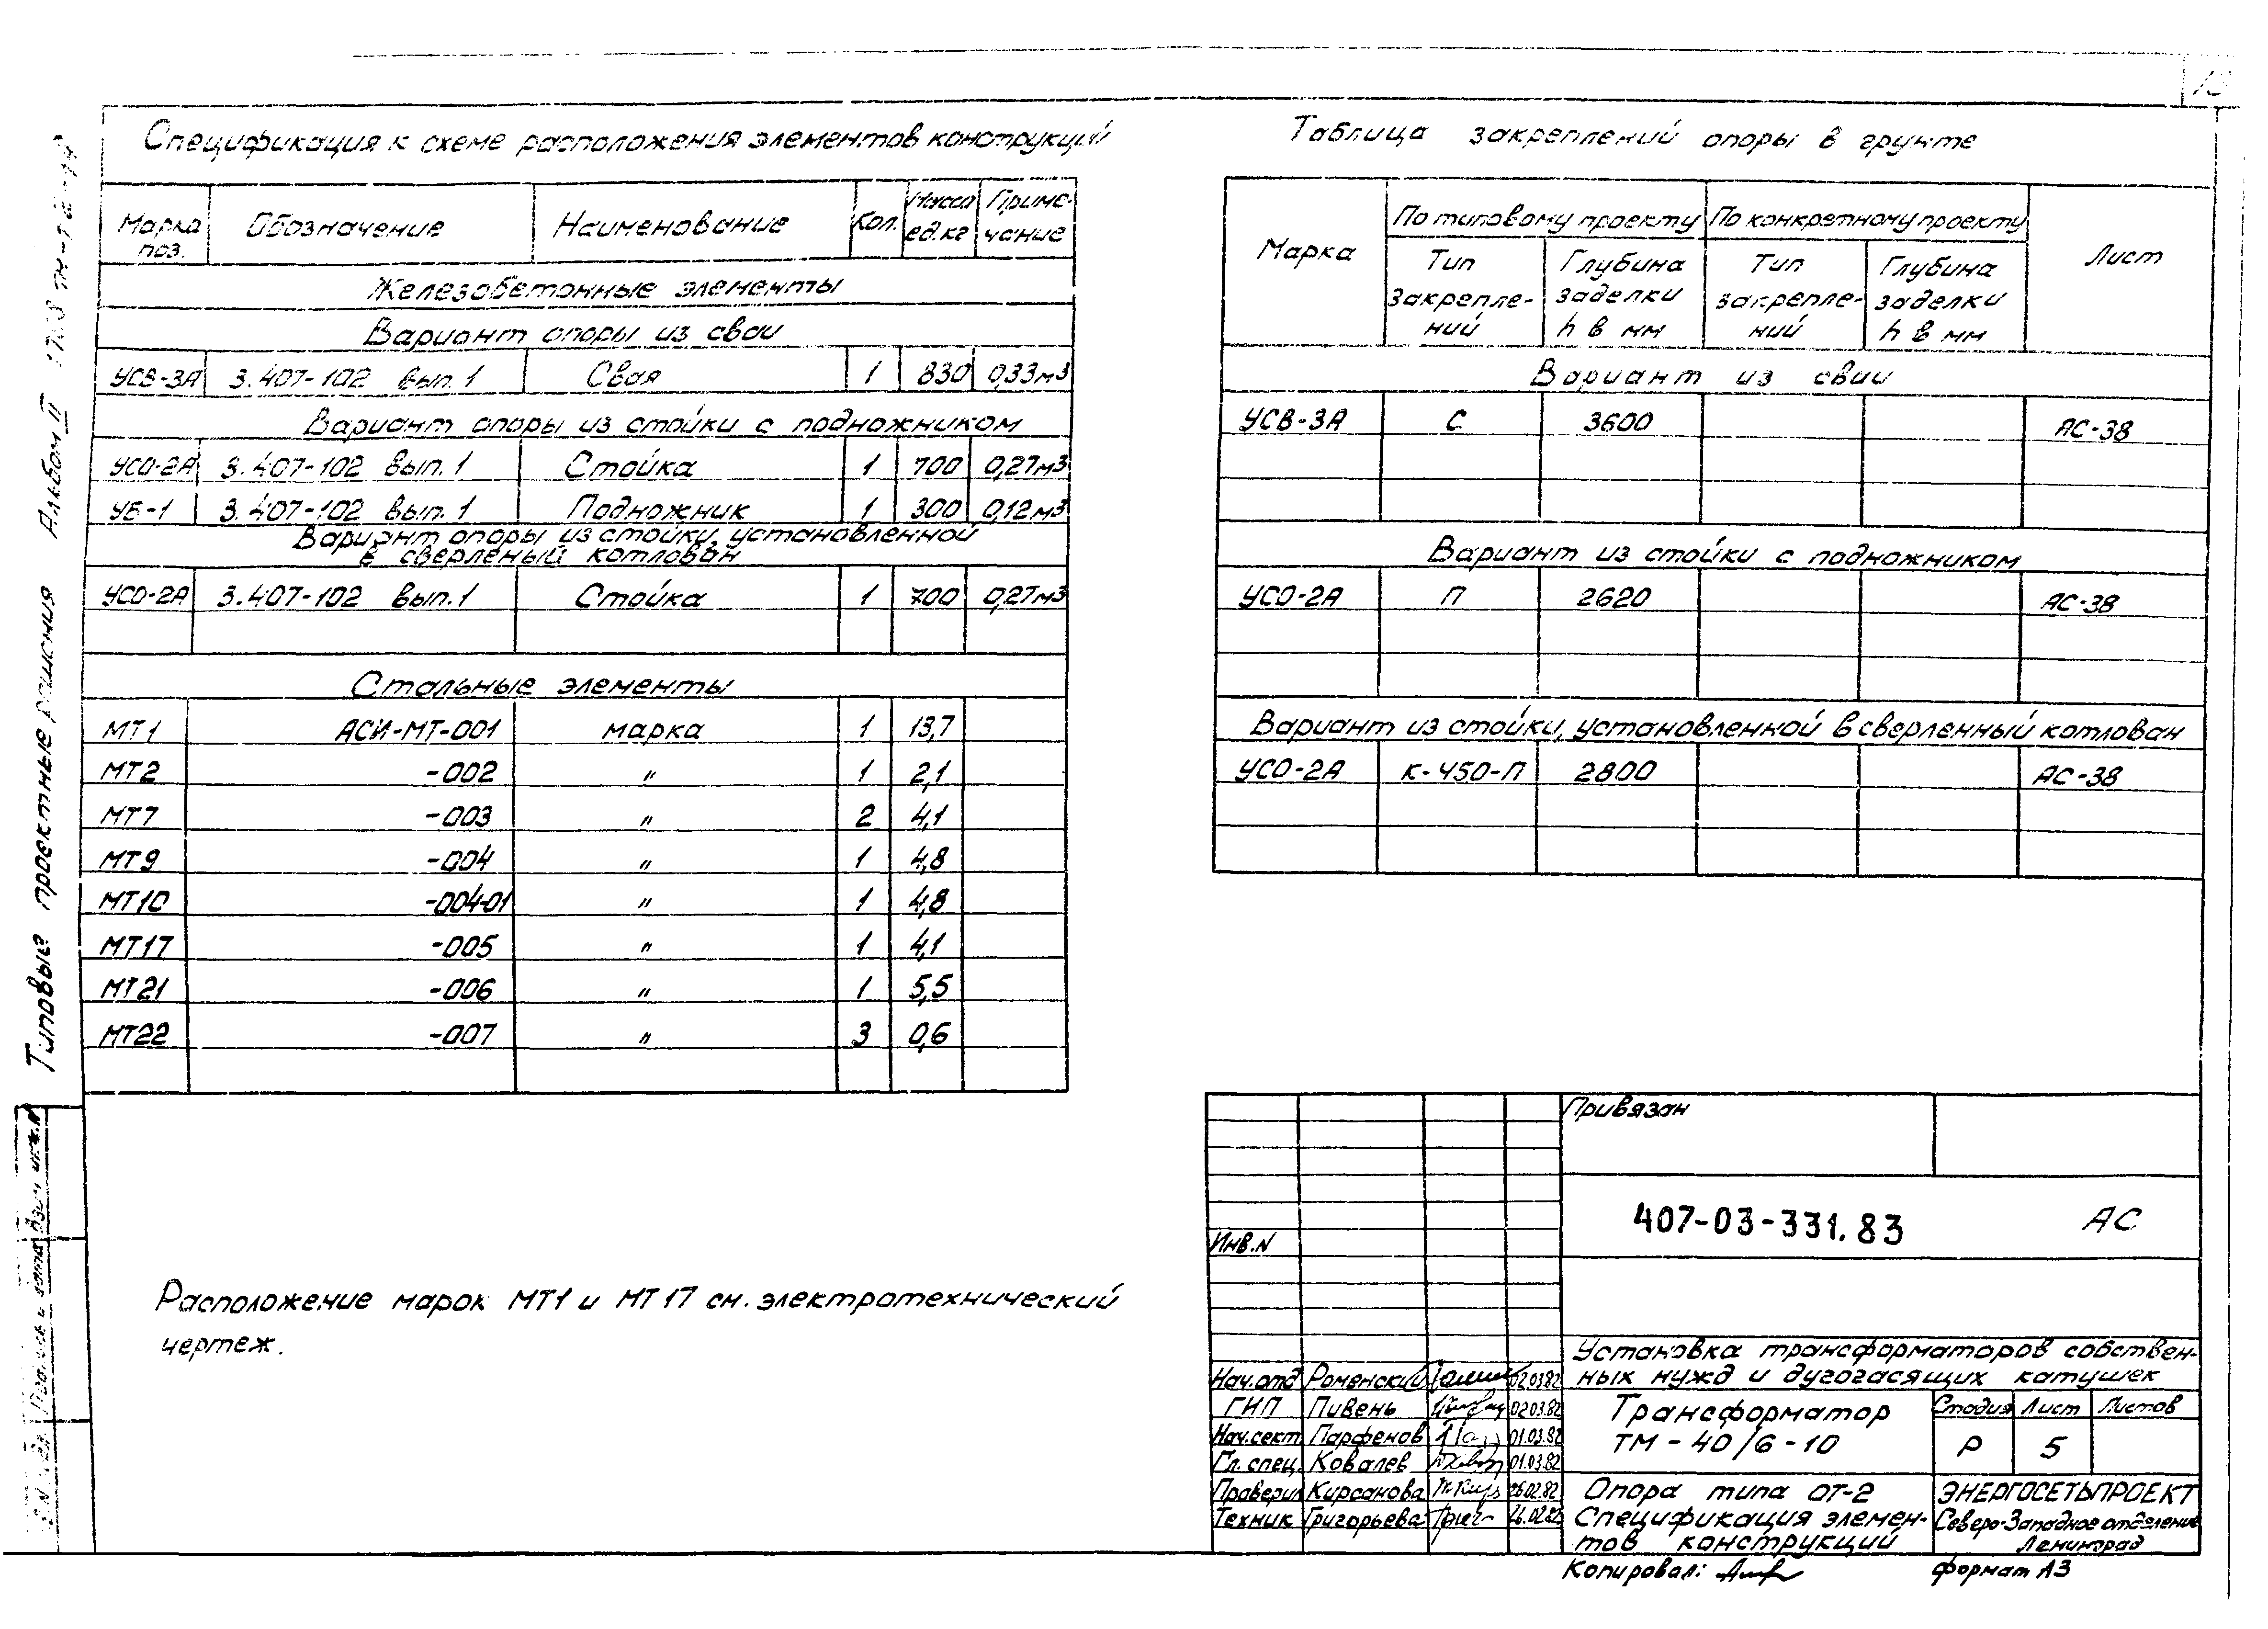 Спецификация к схеме расположения элементов конструкций
Марка поз. Обозначение Наименование Кол. Масса ед.кг Приме-чание
Железобетонные элементы
Вариант опоры из сваи
УСВ-3А 3.407-102 вып.1 Свая 1 830 0,33м3
Вариант опоры из стойки с подножником
УСО-2А 3.407-102 вып.1 Стойка 1 700 0,27м3
УБ-1 3.407-102 вып.1 Подножник 1 300 0,12м3
Вариант опоры из стойки, установленной
в сверленый котлован
УСО-2А 3.407-102 вып.1 Стойка 1 700 0,27м3
Стальные элементы
МТ1 АСИ-МТ-001 марка 1 13,7
МТ2 -002 " 1 2,1
МТ7 -003 " 2 4,1
МТ9 -004 " 1 4,8
МТ10 -004-01 " 1 4,8
МТ17 -005 " 1 4,1
МТ21 -006 " 1 5,5
МТ22 -007 " 3 0,6
Расположение марок МТ1 и МТ17 см. электротехнический
чертеж.
Таблица закреплений опоры в грунте
Марка По типовому проекту По конкретному проекту Лист
Тип закрепле-ний Глубина заделки h в мм Тип закрепле-ний Глубина заделки h в мм
Вариант из сваи
УСВ-3А С 3600 АС-38
Вариант из стойки с подножником
УСО-2А П 2620 АС-38
Вариант из стойки, установленной в сверленный котлован
УСО-2А К-450-П 2800 АС-38
Привязан
Инв.N
407-03-331.83 АС
Установка трансформаторов собствен-
ных нужд и дугогасящих катушек
Нач.отд Роменский 02.03.82
ГИП Пивень 02.03.82
Нач.сект. Парфенов 01.03.82
Гл.спец. Ковалев 01.03.82
Проверил Кирсанова 26.02.82
Техник Григорьева 26.02.82
Трансформатор
ТМ-40/6-10
Стадия Лист Листов
Р 5
Опора типа ОТ-2
Спецификация элемен-
тов конструкций
ЭНЕРГОСЕТЬПРОЕКТ
Северо-Западное отделение
Ленинград
Копировал:
формат А3
Типовые проектные решения Альбом II